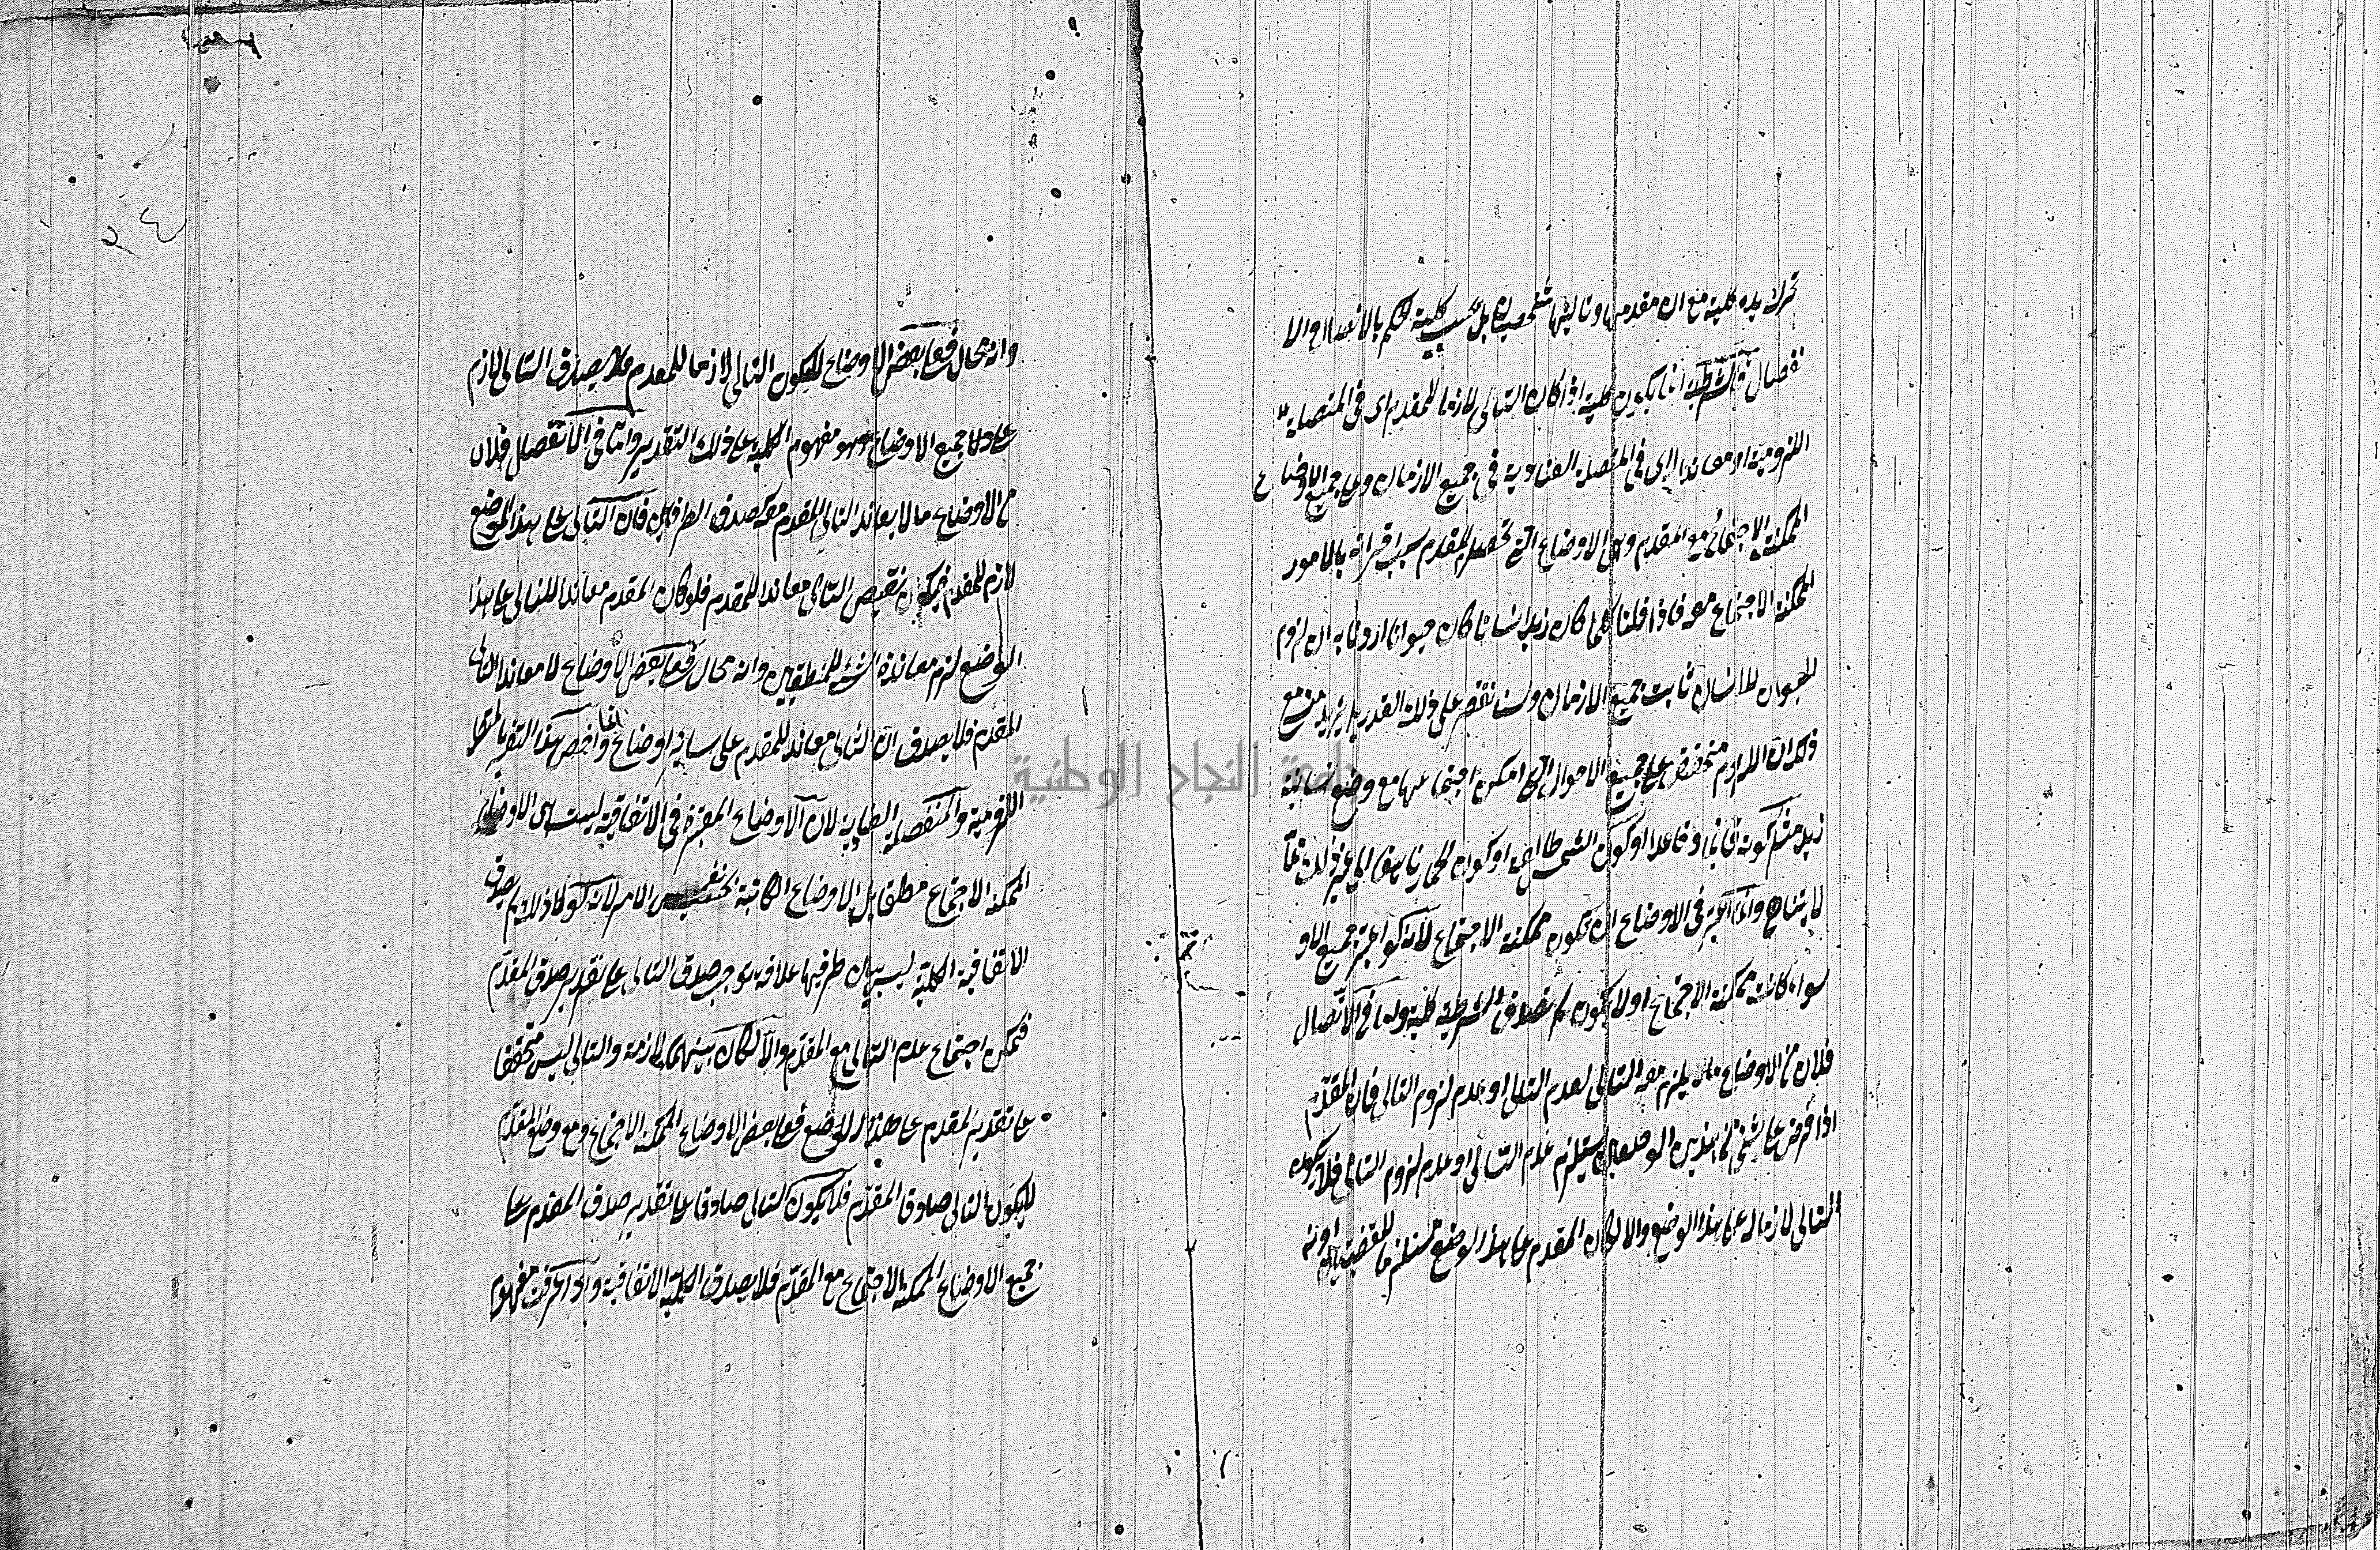 تحرك يده كلية مع ان مقدمها وتاليها شخصيتان بل بحسب كلية الحكم بالاتصال والا
نفصال فالشرطية انما يكون كلية اذا كان التالى لازما للمقدم اى فى المتصلة
اللزومية او معاندا اى فى المنفصلة العنادية فى جميع الازمان وعلى جميع الاوضاع
الممكنة الاجتماع مع المقدم وهى الاوضاع التى تحصل للمقدم بسبب اقترانه بالامور
الممكنة الاجتماع معه فاذا قلنا كلما كان زيد انسانا كان حيوانا اردنا به ان لزوم
الحيوان للانسان ثابت جميع الازمان ولسنا نقتصر على ذلك القدر بل نريد مع
ذلك ان اللزوم متحقق على جميع الاحوال التى امكن اجتماعها مع وضع انسانية
زيد مثل كونه قائما وقاعدا او كون الشمس طالعة او كون الحمار ناهقا الى غير ذلك مما
لا يتناهى وانما اعتبر فى الاوضاع ان تكون ممكنة الاجتماع لانه لو اعتبر جميع الاو
سواء كانت ممكنة الاجتماع او لا تكون لم تصدق الشرطية كلية اما فى الاتصال
فلان من الاوضاع ما لا يلزم معه التالى لعدم التالى او عدم لزوم التالى فان المقدم
اذا فرض على شئ من هذين الوضعين يستلزم عدم التالى او عدم لزوم التالى فلا يكون
التالى لازما له على هذا الوضع والا لكان المقدم على هذا الوضع مستلزما للنقيضين
وانه محال فعلى بعض الاوضاع لا يكون التالى لازما للمقدم فلا يصدق التالى لازم
على جميع الاوضاع وهو مفهوم الكلية على ذلك التقدير واما فى الانفصال فلان
من الاوضاع ما لا يعاند التالى المقدم معه كصدق الطرفين فان التالى على هذا الوضع
لازم للمقدم فيكون نقيض التالى معاندا للمقدم فلو كان المقدم معاندا للتالى على هذا
الوضع لزم معاندة الشئ للنقيضين وانه محال فعلى بعض الاوضاع لا معاند التالى
المقدم فلا يصدق ان التالى معاند للمقدم على سائر اوضاع وانما خص هذا التفسير بالمتصلة
اللزومية والمنفصلة العنادية لان الاوضاع المعتبرة فى الاتفاقية ليست هى الاوضاع
الممكنة الاجتماع مطلقا بل الاوضاع الكائنة بحسب نفس الامر لانه لو لا ذلك لم يصدق
الاتفاقية الكلية ليس بين طرفيها علاقة توجب صدق التالى على تقدير صدق المقدم
فيمكن اجتماع عدم التالى مع المقدم والا لكان بينهما ملازمة والتالى ليس متحققا
على تقدير المقدم على هذا الوضع فعلى بعض الاوضاع الممكنة الاجتماع مع وضع المقدم
لا يكون التالى صادق المقدم فلا يكون التالى صادقا على تقدير صدق المقدم على
جميع الاوضاع الممكنة الاجتماع مع المقدم فلا يصدق الكلية الاتفاقية واذا عرفت مفهوم
جامعة النجاح الوطنية